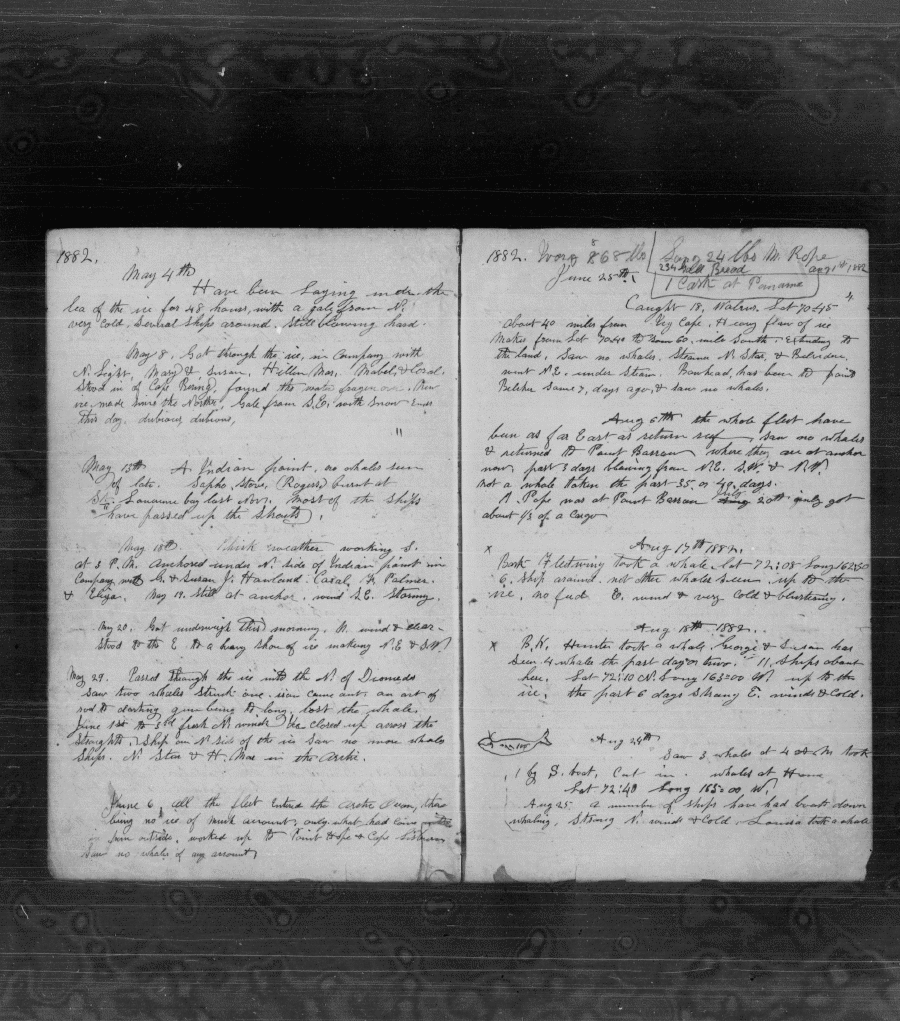 1882.
May 4th
Have been laying under the
lea of the ice for 48 hours, with a gale from N.
very cold. several ships around. still blowing hard.
May 8. Got through the ice, in company with
N. Light, Mary & Susan, Hellen Mar, Mabel, & Coral.
Stood in of Cape Bering, found the water frozen over. New
ice made since the Norther. Gale from S.E. with snow Ends
this day. dubious, dubious,
May 15th A Indian point. no whales seen
of late. Sapho, Stove, (Rogers) burnt at
St. Lawrance bay last Nov. Most of the ships
have passed up the Straits.
May 18th. Thick weather working S.
at 3 P.M. Anchored under N. side of Indian point in
Company with G. & Susan, J. Howland. Coral, F. Palmer.
& Eliza. May 19. Still at anchor. wind S.E. Stormy.
May 20. Got underweigh this morning. N. wind & clear
Stood to the E. to a heavy Shore of ice making N.E & S.W.
May 29. Passed through the ice into the N. of Diomeds
Saw two whales Struck one. iron came out. on act of
rod to darting gun being to long. lost the whale.
June 1st to 3rd fresh N. winds Ice closed up across the
Straights, 7 Ship on N. side of the ice Saw no more whales
Ships. N. Star & H. Mar in the Arctic.
June 6, all the fleet Entered the Arctic Ocean, there
being no ice of much account, only what had come
from outside, worked up to Point Hope & Cape Lisburn
Saw no whales of any account
1882. 868 lbs 24 lbs M. Rope
June 28th. 234 Gall Bread Aug 1st 1882
1 Cask at Panama
Caught 18, Walrus. Lat 70=45
about 40 miles from Icy Cape. Heavy flaw of ice
Makes from Lat 70=40 to 60. mile South. Extending to
the land, Saw no whales. Steamer N. Star, & Belvidere,
went N.E. under Steam. Bowhead, has been to point
Belcher Some 7, days ago, & saw no whales.
Aug 6th the whole fleet have
been as far East as return reef saw no whales
& returned to Point Barrow where they are at anchor
now. past 3 days blowing from N.E. S.W. & N.W.
Not a whale taken the past 35, or 40, days.
R. Pope was at Point Barrow July 20th only got
about 1/3 of a cargo
x Aug 17th 1882.
Bark Fleetwing took a whale. Lat 72=08 Long 162=50
6. ship around. no other whales seen. up to the
ice. no feed E. wind & very cold & blustering.
Aug 18th 1882.
x B.K. Hunter took a whale. George & Susan has
Seen 4 whale the past day or two. 11, ships about
here. Lat 72=10 N. Long 163=00 W. up to the
ice, the past 6 days Strong E. winds & Cold.
Aug 24th
Saw 3 whales at 4 took
1 by S. boat, Cut in. whales at
Lat 72:40 Long 165=00 W.
Aug 25. a number of ships have had boats down
whaling, Strong N. winds & Cold. Louisa took a whale